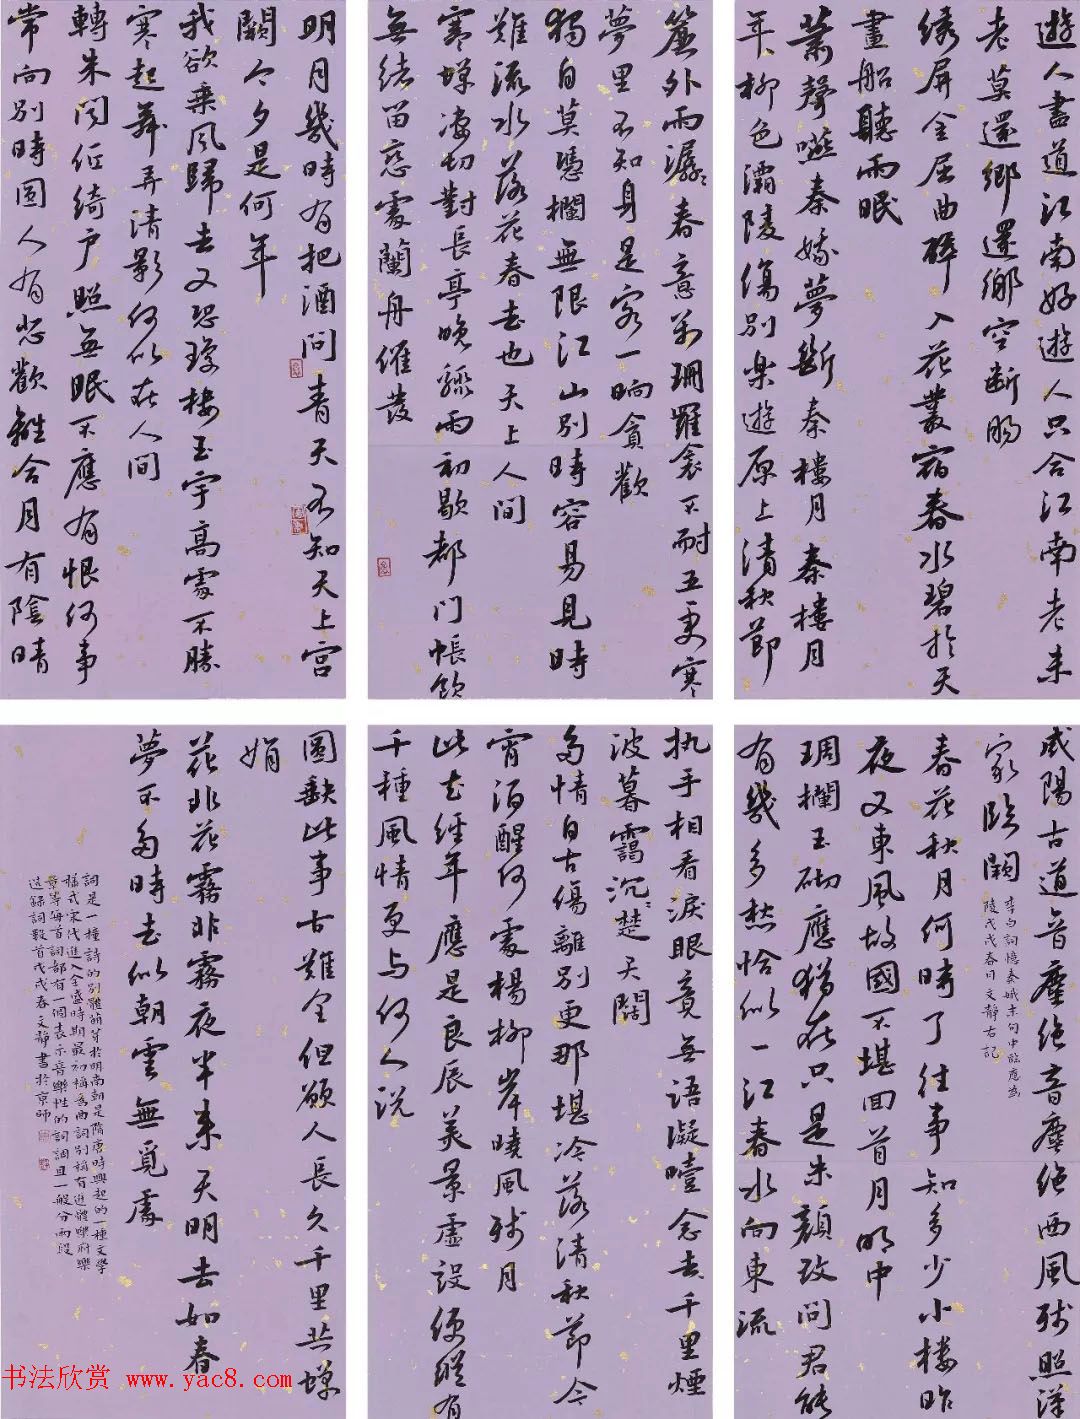 遊人盡道江南好遊人只合江南老未
老莫還鄉還鄉空断腸
綉屏金屈曲醉入花叢宿春水碧於天
畫船聽雨眠
簫聲咽秦娥夢斷秦樓月秦樓月
年〻柳色灞陵傷別樂遊原上清秋節
咸陽古道音塵絕音塵絕西風殘照漢
家臨闕
李白詞憶秦娥末句中臨應為
陵戊戌春日文靜右記
春花秋月何時了往事知多少小樓昨
夜又東風故國不堪回首月明中
琱欄玉砌應猶在只是朱顏改問君能
有幾多愁恰似一江春水向東流
簾外雨潺〻春意闌珊羅衾不耐五更寒
夢里不知身是客一晌貪歡
獨自莫憑欄無限江山別時容易見時
難流水落花春去也天上人間
寒蟬凄切對長亭晚驟雨初歇都門帳飲
無緒留戀處蘭舟催發
执手相看淚眼竟無語凝噎念去〻千里煙
波暮靄沉〻楚天闊
多情自古傷離別更那堪冷落清秋節今
宵酒醒何處楊柳岸曉風殘月
此去經年應是良辰美景虛設便縱有
千種風情更与何人説
明月幾時有把酒問青天不知天上宮
闕今夕是何年
我欲乘風歸去又恐瓊樓玉宇高處不勝
寒起舞弄清影何似在人間
轉朱閣低綺户照無眠不應有恨何事
常向別時圓人有悲歡離合月有陰晴
圓缺此事古難全但願人長久千里共嬋
娟
花非花霧非霧夜半来天明去如春
夢不多時去似朝雲無覓處
詞是一種詩的別體萌芽於明南朝是隋唐時興起的一種文學
樣式宋代進入全盛時期最初稱為曲詞別稱有近體樂府樂
章等每首詞都有一個表示音樂性的詞調且一般分兩段
選録詞數首戊戌春文靜書於京師
书法欣赏 www.yac8.com